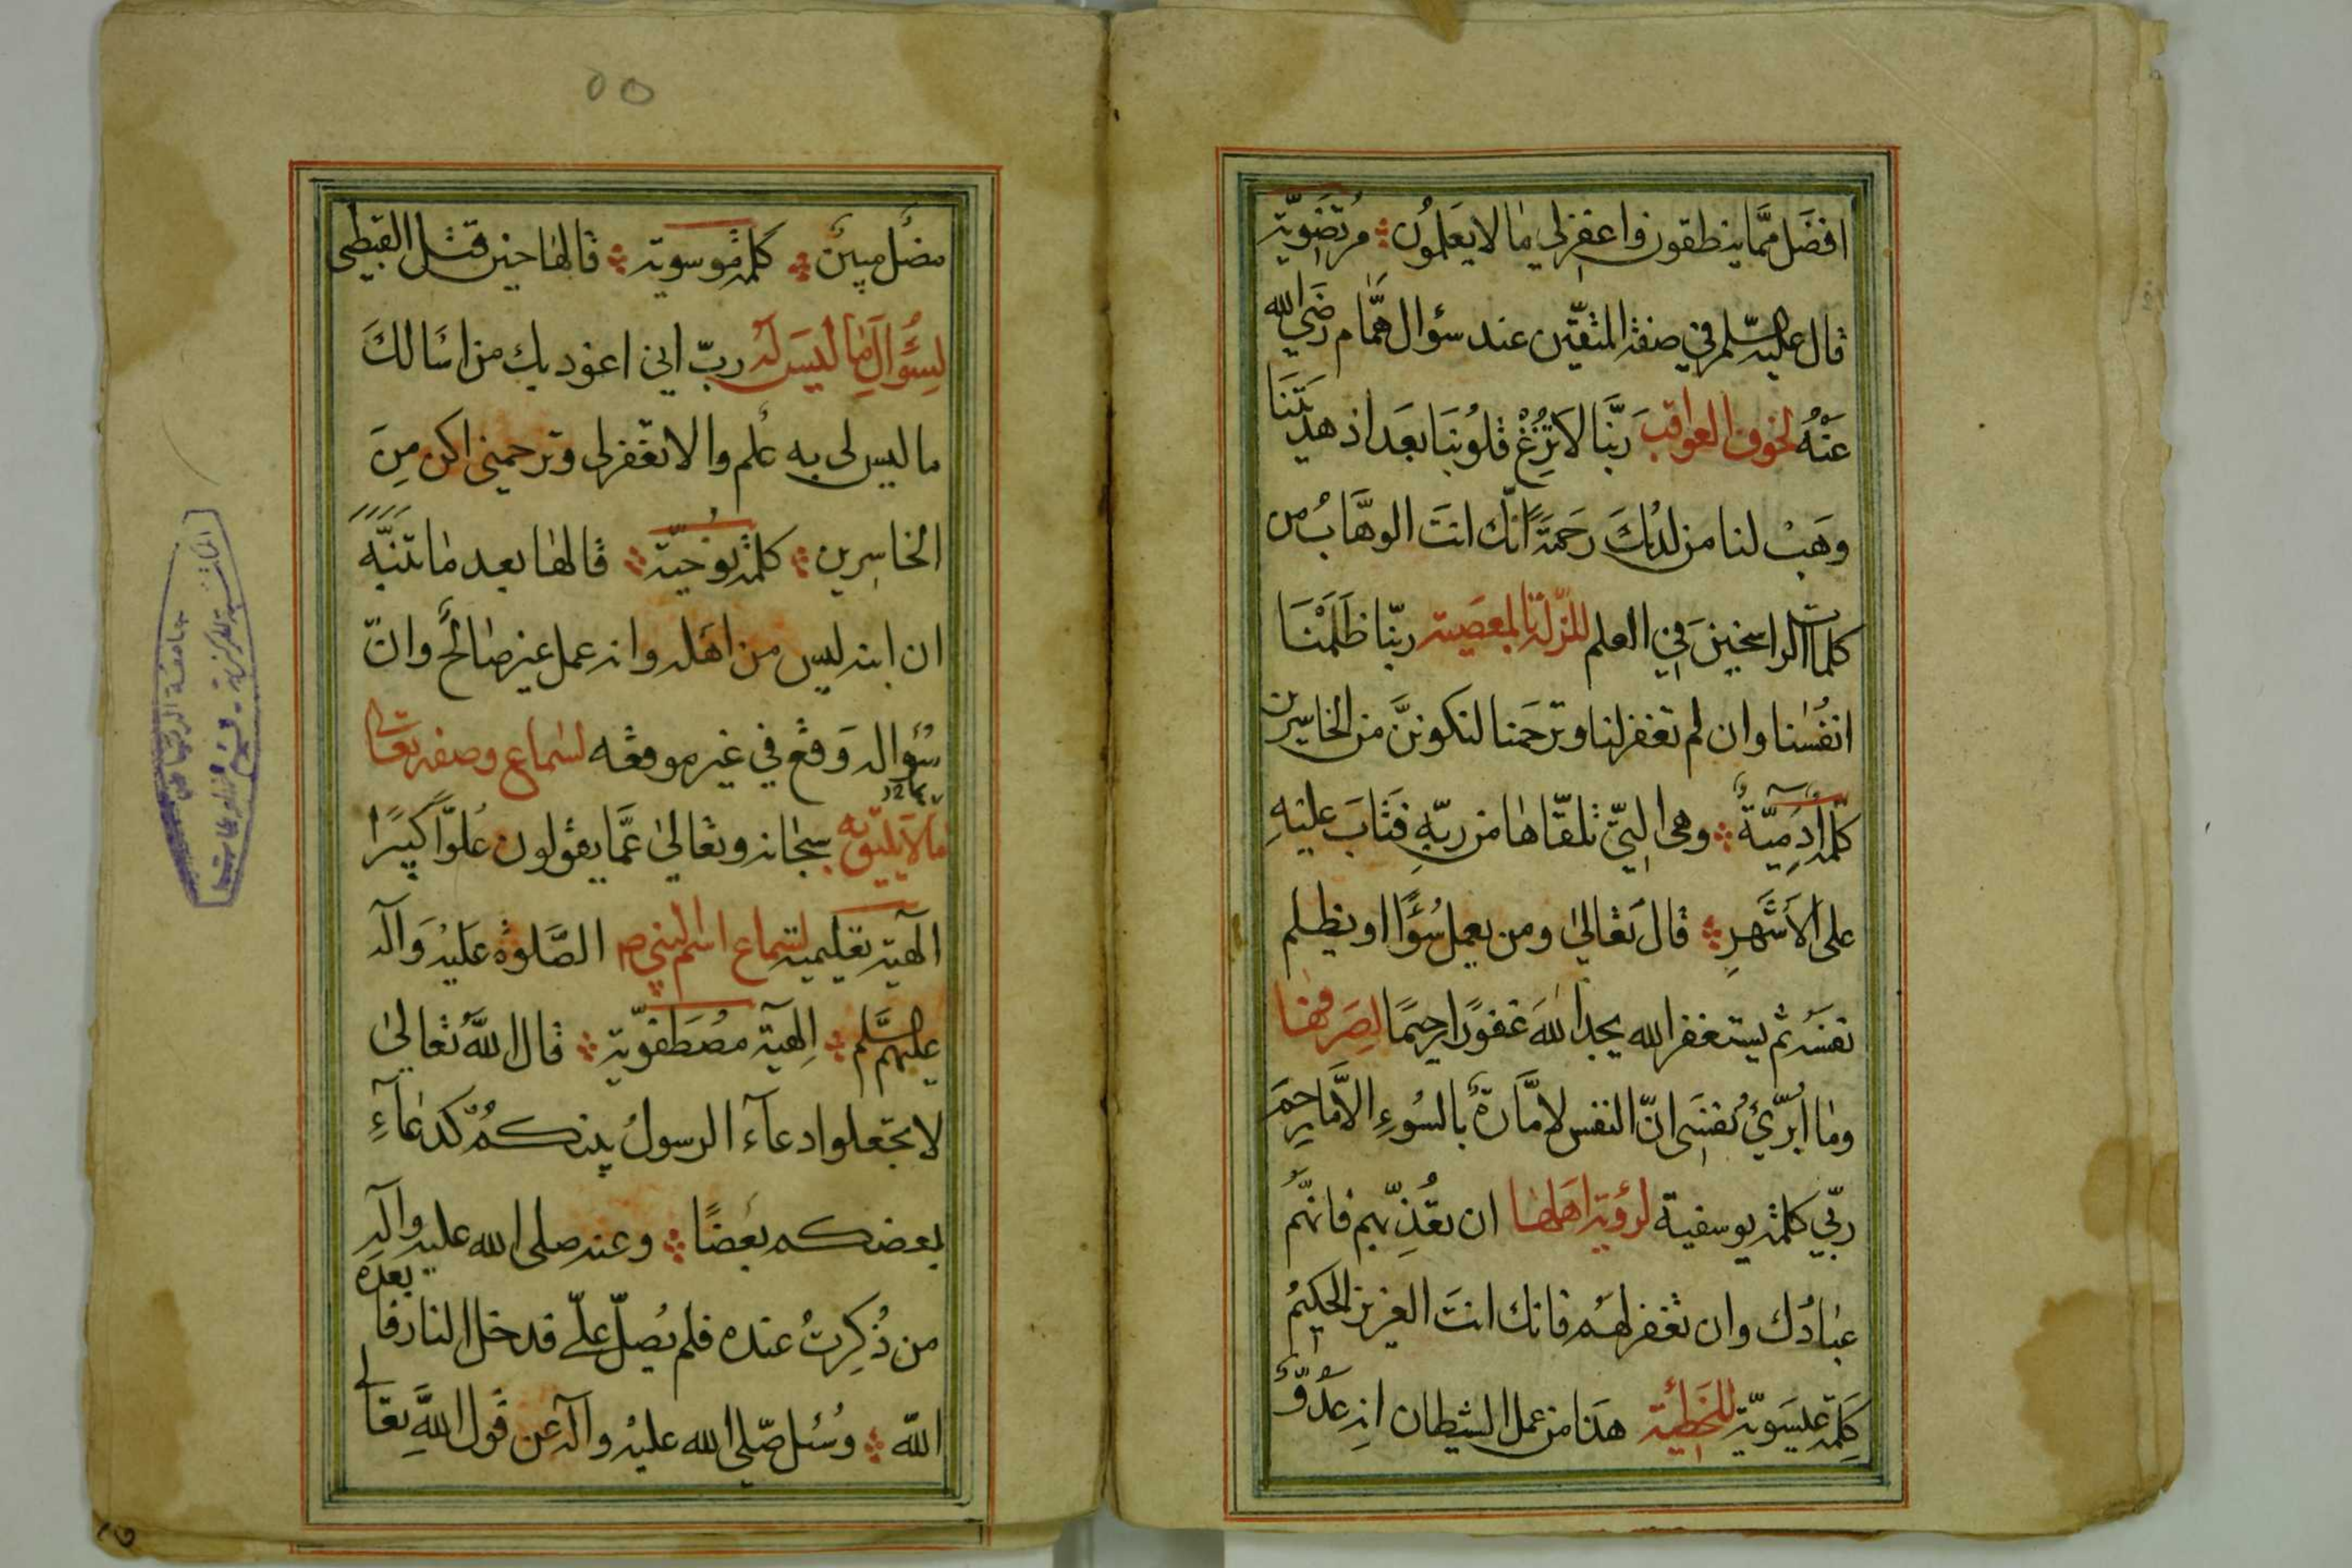 افضَل ممَّا ينطقون واغفِرلي مٰا لا يعَلمُون مرُتضَويّة
قال عليه السّلم في صفة المتّقين عند سؤال همَّام رضَي الله
عنْهُ لخوف العواقبَ ربَّنا لا تزُغْ قلُوبنَا بعَد اذ هديتنَا
وهَبْ لنا من لدُنكَ رحَمَةً انّك انتَ الوهَّابُ من
كلمات الراسخينَ في العلم للزلة المعصَية ربّنا ظلَمْنَا
انفُسَنا وان لم تغفر لنا وترحَمنا لنكوننَّ من الخاسِرين
كلمة آدَمِيَّةٌ وهى التيّ تلقّاهٰا من ربّهِ فتَابَ عليَهِ
على الأشَهرِ قال تعَالىٰ ومن يعمل سُوءًا او يظلم
نفسَهُ ثم يستغفر الله يجد اللهَ غفوُرًا رحيمًا لصرفها
ومٰا اُبرّئُ نفسَي انّ النفس لامَّارةٌ بالسُوءِ الاّ مٰا رحِمَ
ربّي كلمة يوسفية لرؤية اهلها ان تعُذِّبهم فانهَّمُ
عبٰادُك وان تغفر لهَم فانك انتَ العزيز الحكيمُ
كلِمَة عيسَويّة للخطَيئة هذَا من عمل الشيطان انهِ عدُوٌّ
٥٥
مضُل مبينٌ كلمة موسوية قالهٰا حين قتل القبطي
لسِؤُالِ مٰا ليسَ لهُ ربّ اني اعوذ بك من اسَالكَ
ما ليس لى به علم والا تغفر لى وترحمني اكن مِنَ
الخاسِرين كلمة نوُحيّة قالهٰا بعد مٰا تنبَّه
ان ابنه ليس من اهَله وانه عمل غير صٰالحٍ وانّ
سُؤاله وَقع في غير موقعه لسماع وصفه تعالى
بما لا يليَق به سبحٰانه وتعٰالىٰ عمَّا يقولون عُلوًّا كبيرًا
الٓهية تعليمية لسَماع اسم النبي ص الصَّلوة عليَهُ وَآله
عليهمُ السَّلم الِٓهية مصُطَفوّية قال اللهُ تعٰالىٰ
لا تجعلوا دعآء الرسولُ بينكمُ كدعٰآءِ
بعضكم بعَضًا وعنه صلى الله عليه وآلهِ
من ذُكِرتُ عنده فلم يصُلّ علّي فدخل النار فابعده
اللّه وسُئل صّلى الله عليهُ وآله عن قول اللهِ تعالى
جامعة الرياض